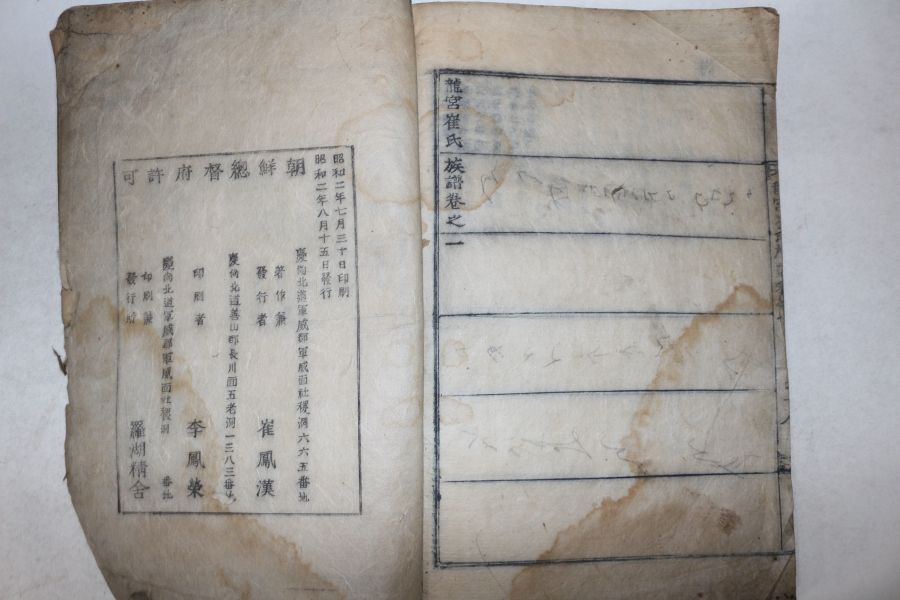 龍宮崔氏族譜卷之一
朝鮮總督府許可
昭和二年七月三十日印刷
昭和二年八月十五日發行
慶尙北道軍威郡軍威面社稷洞六六五番地
著作兼
發行者 崔鳳漢
慶尙北道善山郡長川面五老洞一三八三番地
印刷者 李鳳榮
慶尙北道軍威郡軍威面社稷洞 番地
印刷兼
發行所 羅湖精舍